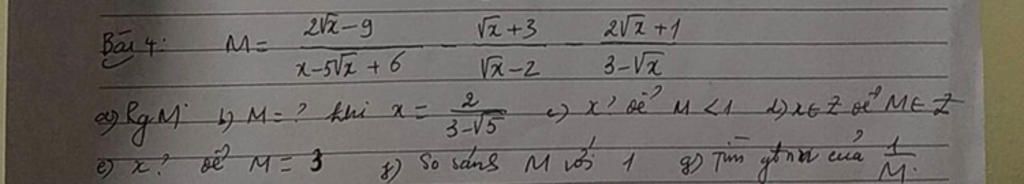 Bài 4: M = \frac{2\sqrt{x}-9}{x-5\sqrt{x}+6} - \frac{\sqrt{x}+3}{\sqrt{x}-2} - \frac{2\sqrt{x}+1}{3-\sqrt{x}}
a) Rg M b) M = ? khi x = \frac{2}{3-\sqrt{5}} c) x? để M < 1 d) x ∈ Z để M ∈ Z
e) x? để M = 3 f) So sánh M với 1 g) Tìm gtnn của \frac{1}{M}.